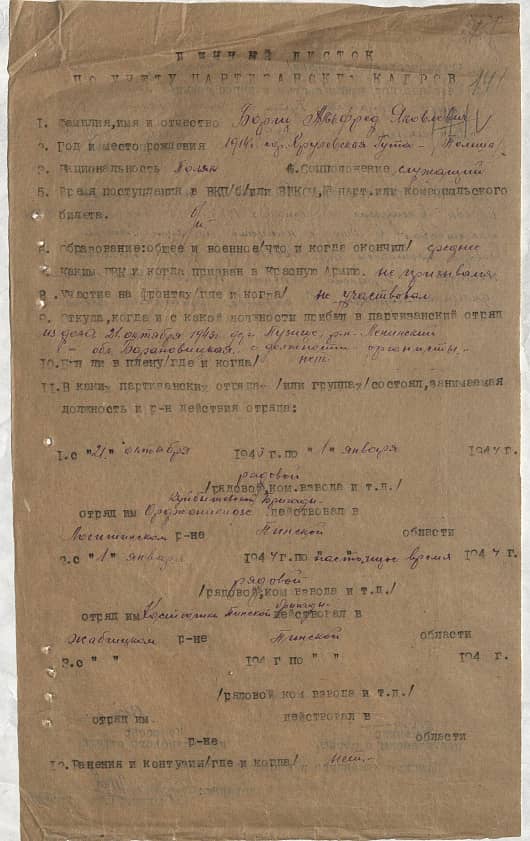 ЛИЧНЫЙ ЛИСТОК
ПО УЧЕТУ ПАРТИЗАНСКИХ КАДРОВ
1. Фамилия,имя и отчество Альфред Яковлевич
2. Год и место рождения 1914г. Гута - Польша
3. Национальность Поляк 4.Соцположение служащий
5. Время поступления в ВКП/б/или ВЛКСМ, парт.или комсомольского
билета.
Образование:общее и военное/что и когда окончил/ среднее
Каким РВК и когда призван в Красную Армию. не призывался
8. Участие на фронтах/где и когда/ не участвовал
9. Откуда,когда и с какой должности прибыл в партизанский отряд
из дома 21 октября 1943г. р-н Ленинский
обл. Барановицкая, с должности органисты.
10. Был ли в плену/где и когда/ нет
11.В каких партизанских отрядах /или группах/состоял,занимаемая
должность и р-н действия отряда:
1.с "21" октября 1943 г.по "1" января 1944г.
рядовой
/рядовой,ком.взвода и т.п./
Куйбышевской бригады
отряд им Орджоникидзе действовал в
р-не Пинской области
2.с "1" января 1944 г.по настоящее время 1944 г.
рядовой
/рядовой,ком взвода и т.п./
бригады
отряд им Костюшки Пинской действовал в
Жабчицком р-не Пинской области
3.с " " 194 г по " " 194 г.
/рядовой ком взвода и т.п./
отряд им. действовал в
р-не области
12.Ранения и контузии/где и когда/ нет.